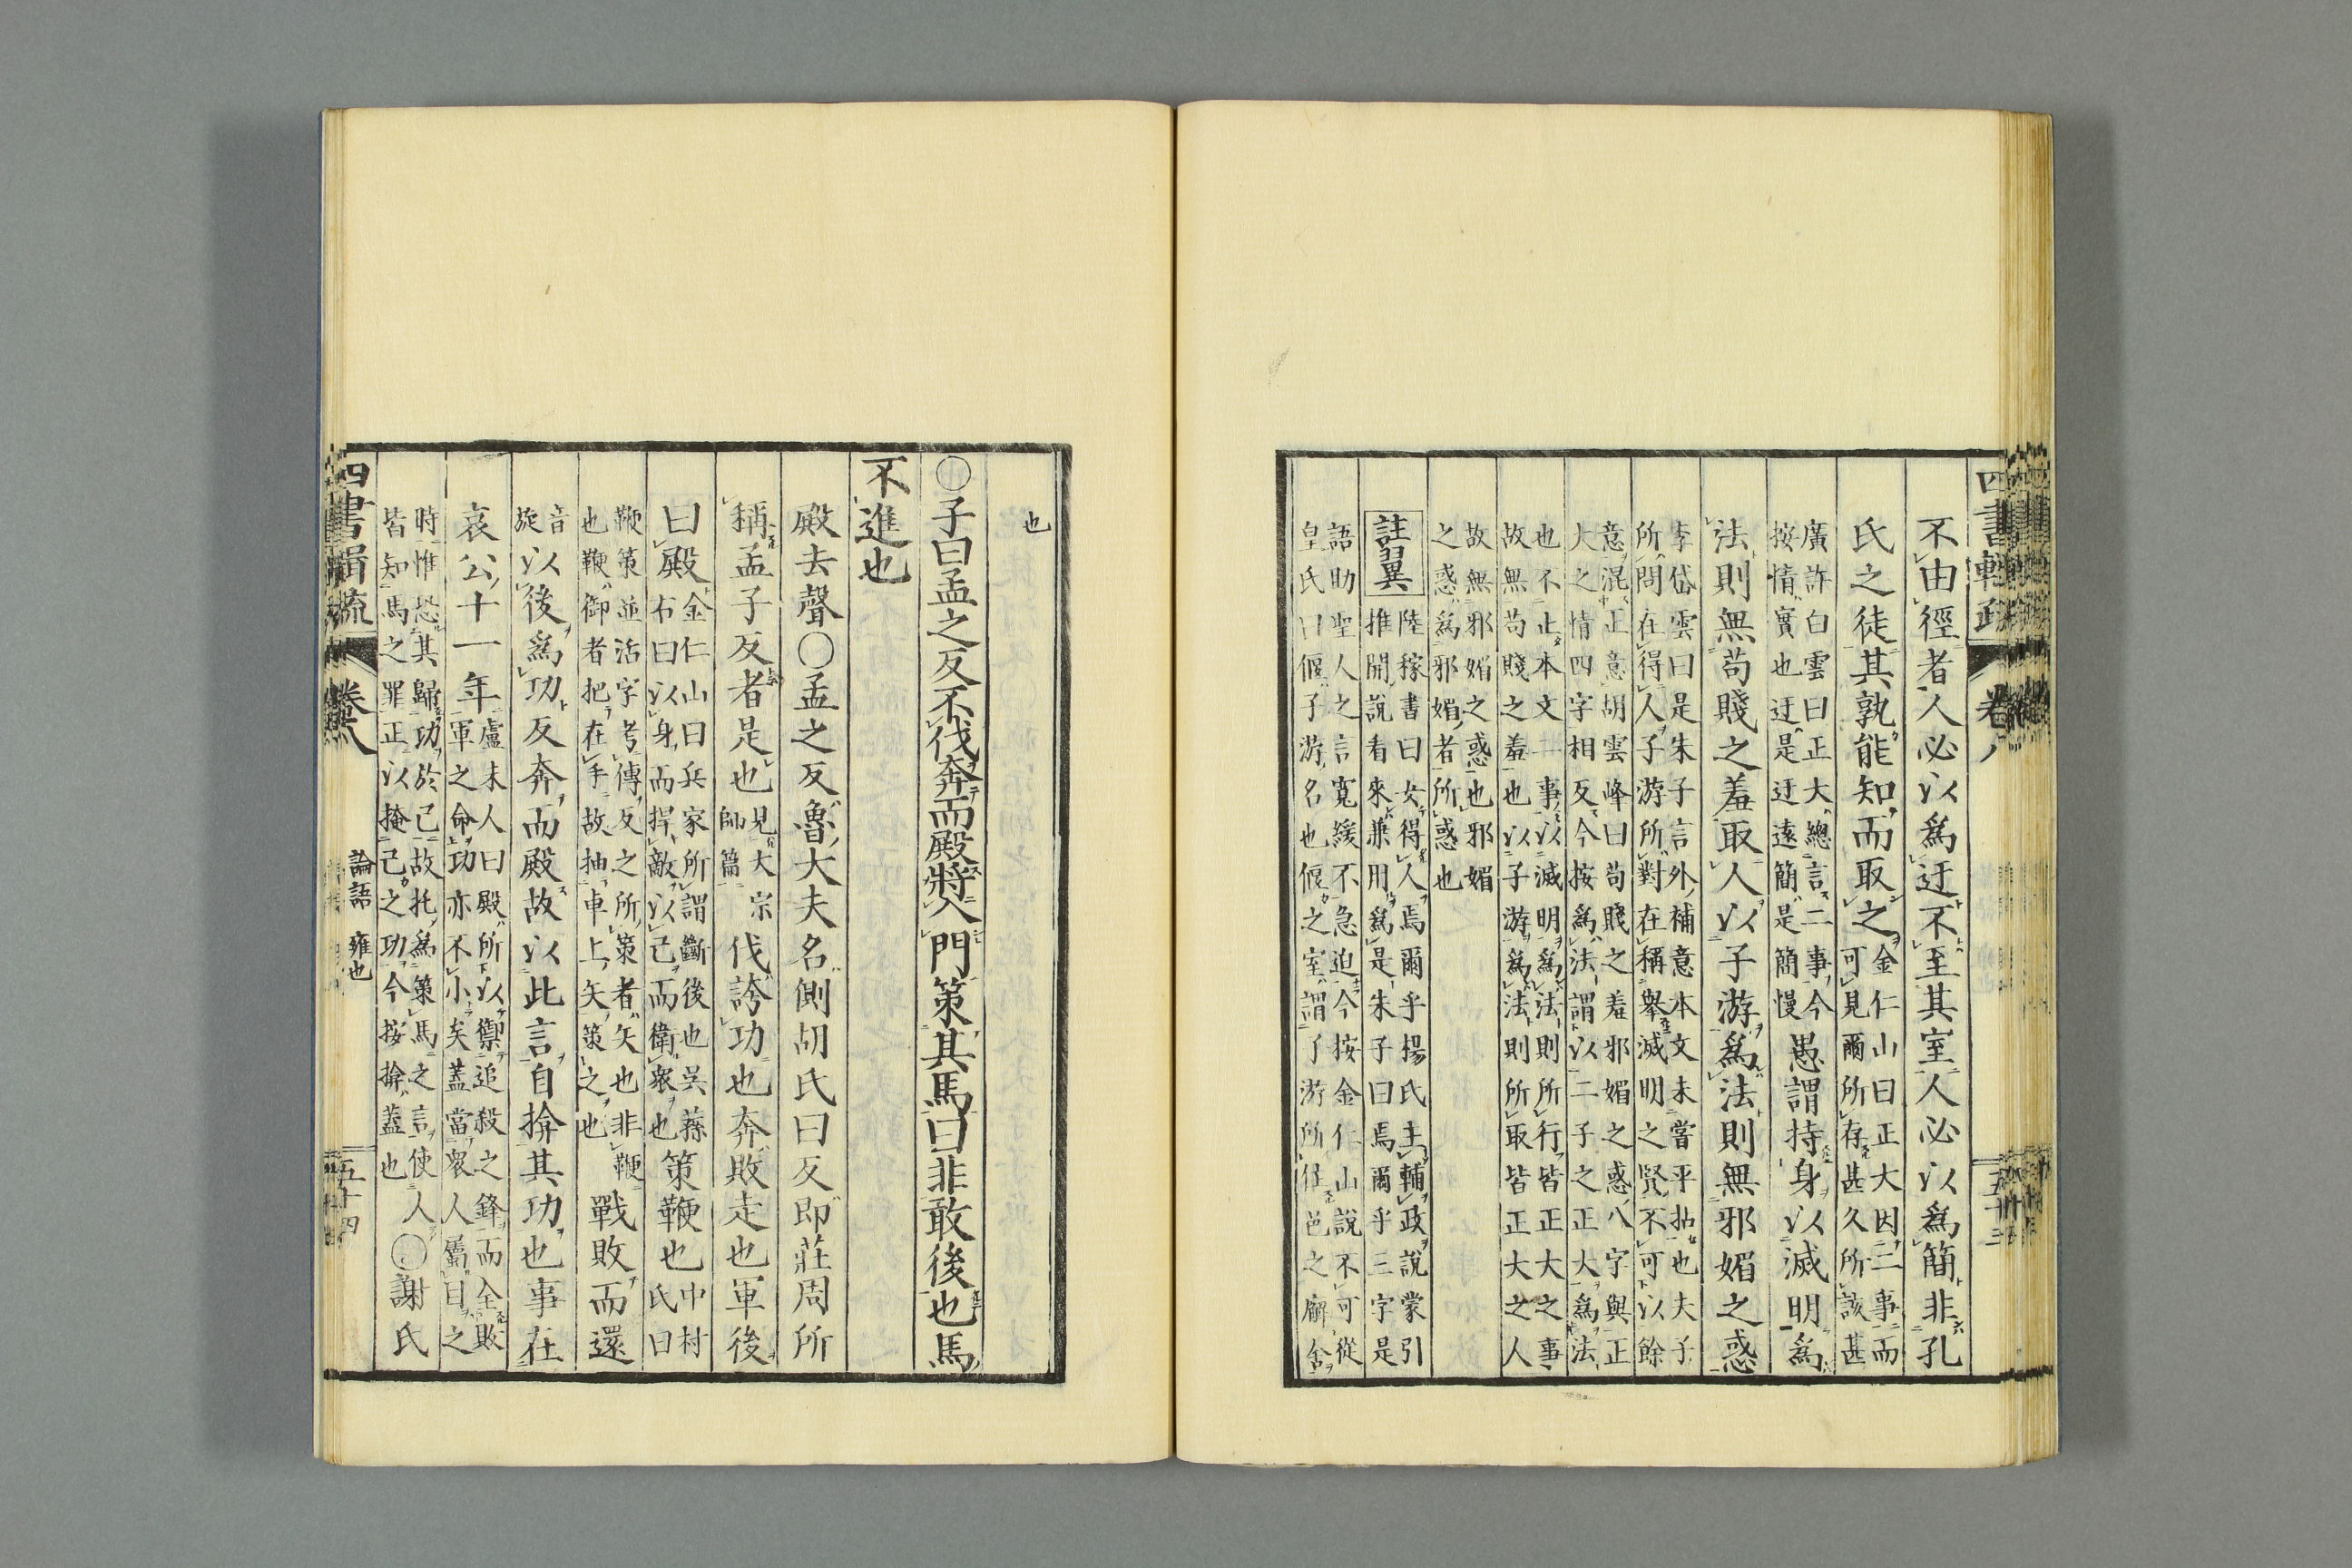 四書輯疏
卷八
五十三
不由徑者人必以爲迂不至其室人必以爲簡非孔
氏之徒其孰能知而取之金仁山曰正大因二事而
可見爾所存甚久所該甚
廣許白雲曰正大總言二事今
按情實也迂是迂遠簡是簡慢愚謂持身以滅明爲
法則無苟賤之羞取人以子游爲法則無邪媚之惑
李岱雲曰是朱子言外補意本文未嘗平拈也夫子
所問在得人子游所對在稱擧滅明之賢不可以餘
意混正意胡雲峰曰苟賤之羞邪媚之惑八字與正
大之情四字相反今按爲法謂以二子之正大爲法
也不止本文二事以滅明爲法則所行皆正大之事
故無苟賤之羞也以子游爲法則所取皆正大之人
故無邪媚之惑也邪媚
之惑爲邪媚者所惑也
註翼
陸稼書曰女得人焉爾乎揚氏主輔政說蒙引
推開說看來兼用爲是朱子曰焉爾乎三字是
語助聖人之言寬緩不急迫今按金仁山說不可從
皇氏曰偃子游名也偃之室謂子游所住邑之廨舍
也
○子曰孟之反不伐奔而殿將入門策其馬曰非敢後也馬
不進也
殿去聲○孟之反魯大夫名側胡氏曰反即莊周所
稱孟子反者是也見大宗
師篇伐誇功也奔敗走也軍後
曰殿金仁山曰兵家所謂斷後也吳蓀
右曰以身而捍敵以己而衛衆也策鞭也中村
氏曰
鞭策並活字考傳反之所策者矢也非鞭
也鞭御者把在手故抽車上矢策之也戰敗而還
音
旋以後爲功反奔而殿故以此言自揜其功也事在
哀公十一年盧未人曰殿所以禦追殺之鋒而全敗
軍之命功亦不小矣蓋當衆人屬目之
時惟恐其歸功於己故托爲策馬之言使人
皆知馬之罪正以掩己之功今按揜蓋也○謝氏
四書輯疏
卷八
論語 雍也
五十四